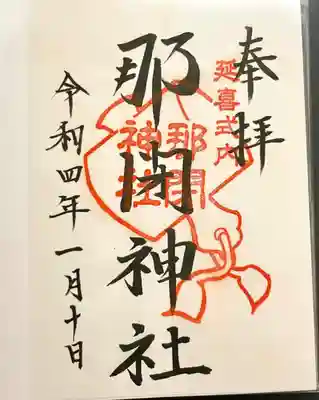 奉拝
延喜式内
那閇神社
那閇
神社
令和四年一月十日